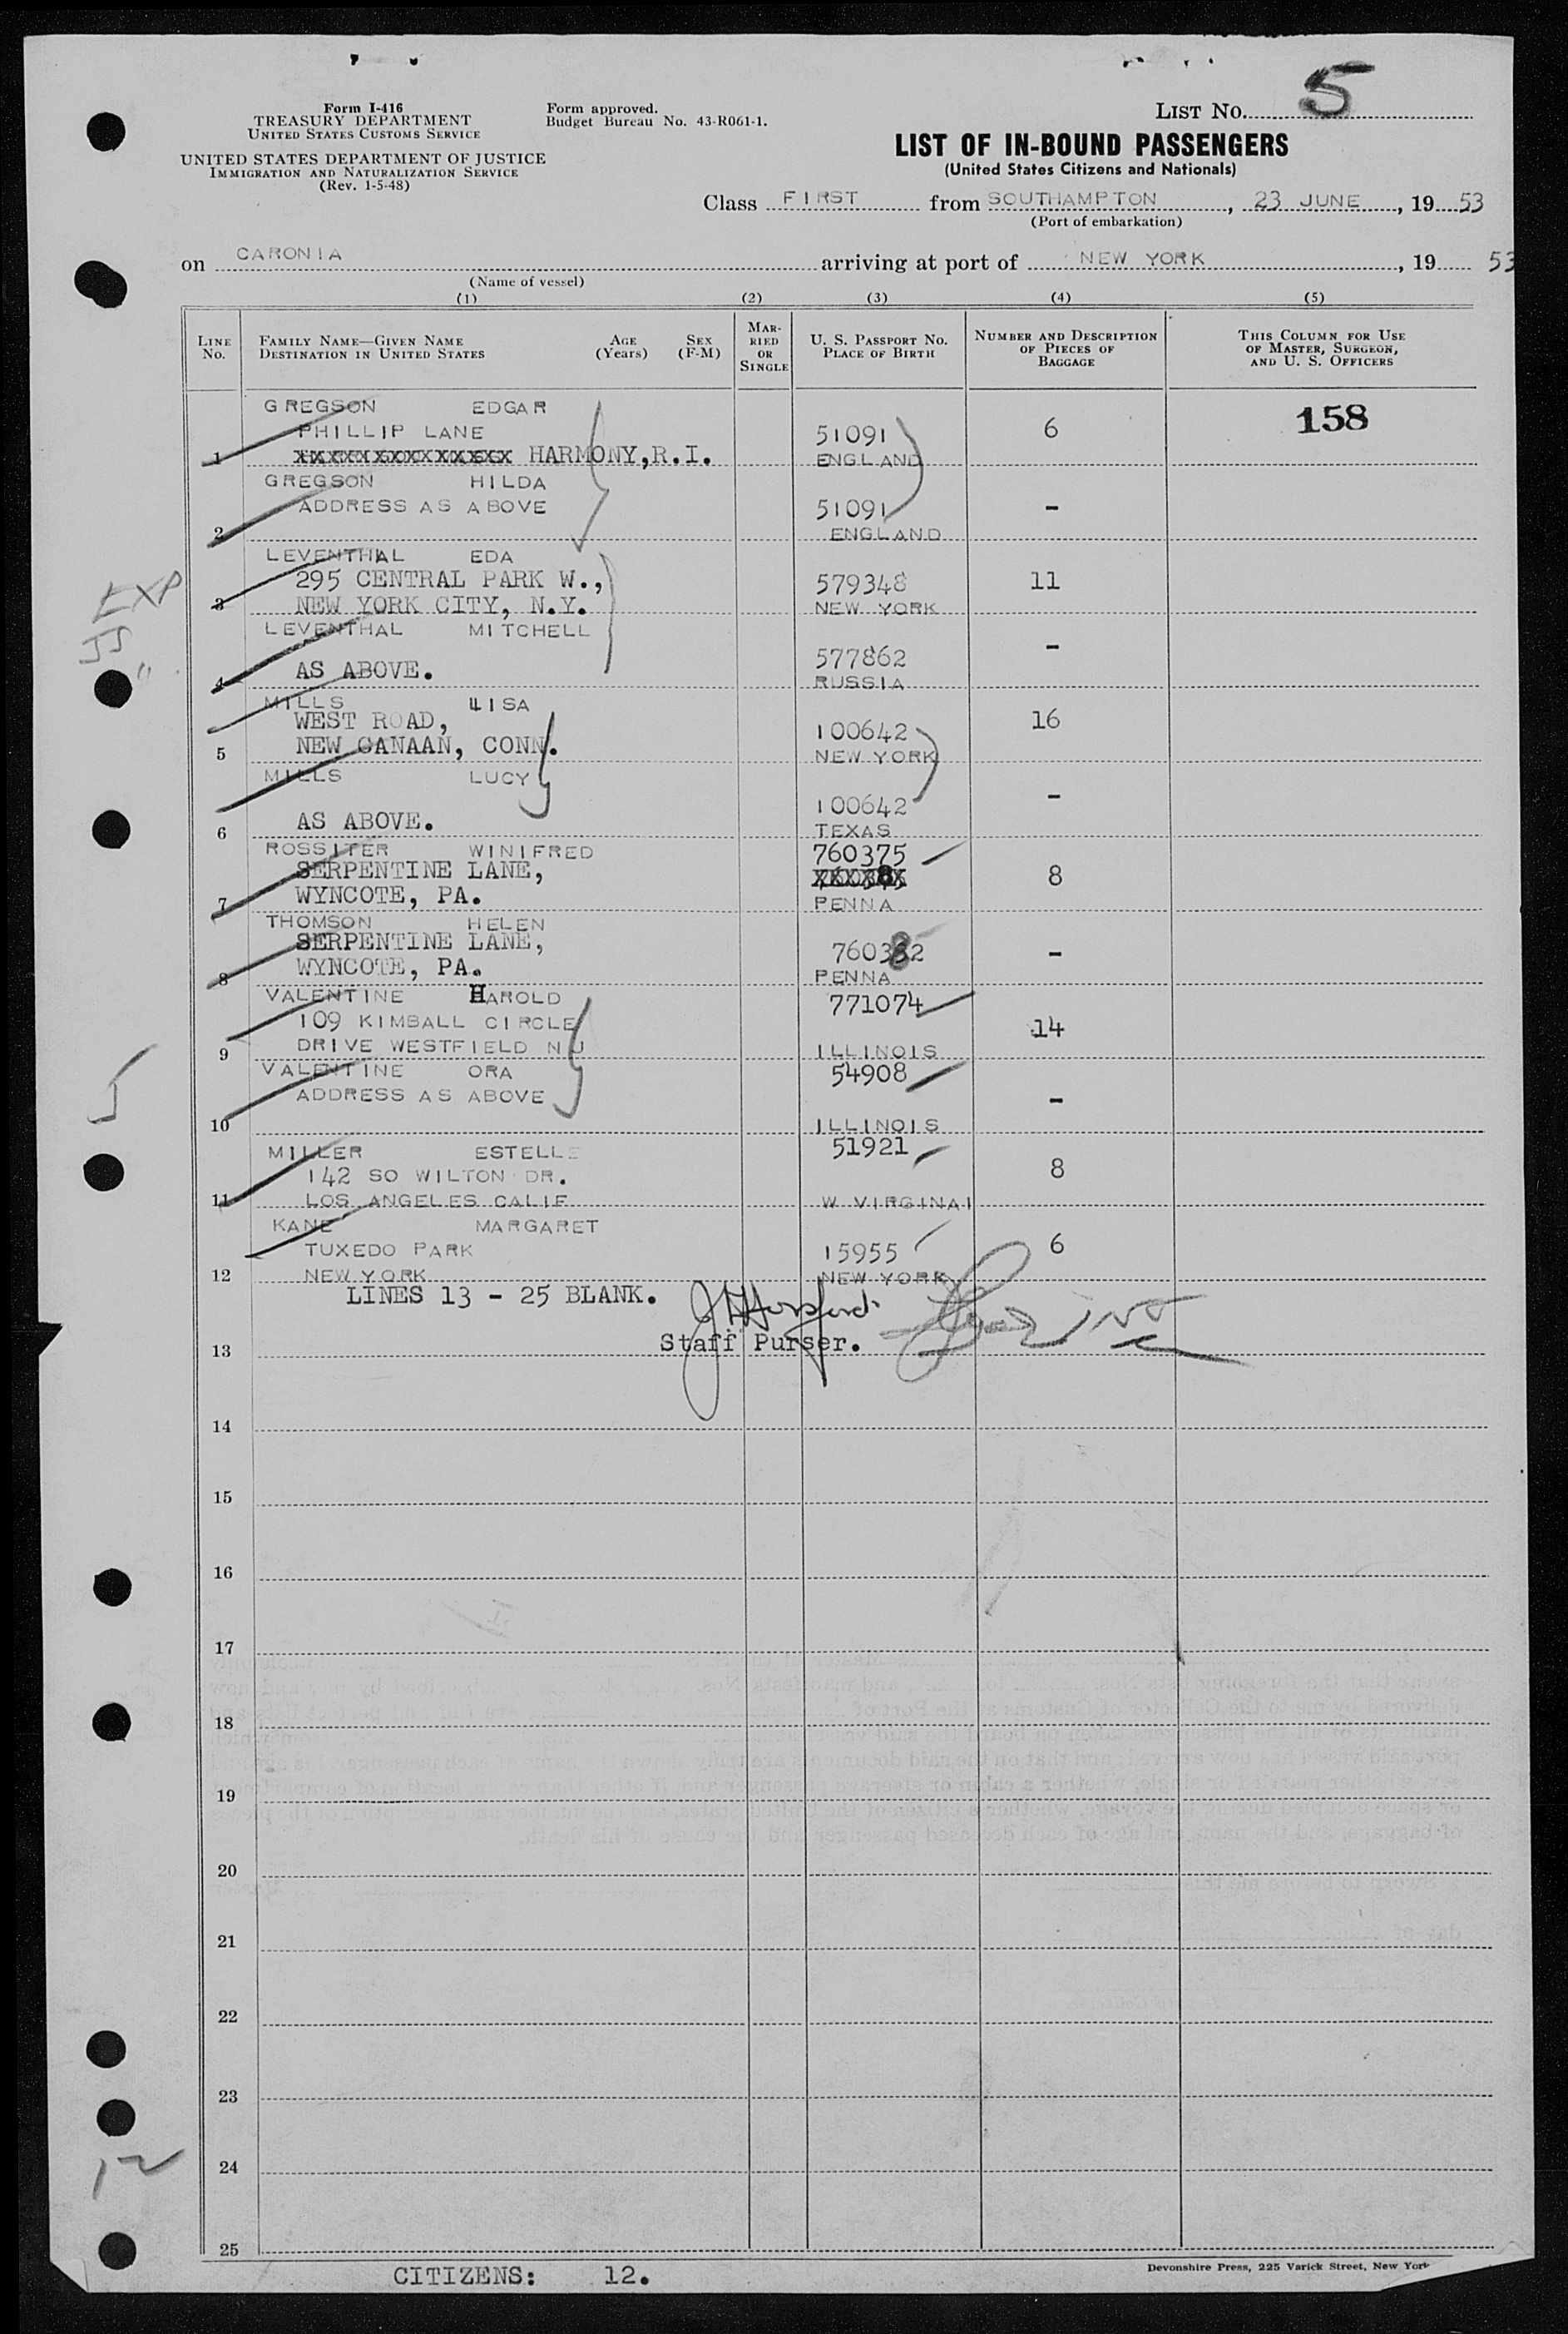 Form I-416
TREASURY DEPARTMENT
UNITED STATES CUSTOMS SERVICE
UNITED STATES DEPARTMENT OF JUSTICE
IMMIGRATION AND NATURALIZATION SERVICE
(Rev. 1-5-48)
Form approved.
Budget Bureau No. 43-R061-1.
LIST NO. 5
LIST OF IN-BOUND PASSENGERS
(United States Citizens and Nationals)
Class FIRST from SOUTHAMPTON, 23 JUNE, 19 53
(Port of embarkation)
on CARONIA arriving at port of NEW YORK, 19 53
(Name of vessel)
(1) (2) (3) (4) (5)
LINE No.
FAMILY NAME—GIVEN NAME
DESTINATION IN UNITED STATES
AGE (Years)
SEX (F-M)
MARRIED OR SINGLE
U. S. PASSPORT NO.
PLACE OF BIRTH
NUMBER AND DESCRIPTION OF PIECES OF BAGGAGE
THIS COLUMN FOR USE OF MASTER, SURGEON, AND U. S. OFFICERS
GREGSON EDGAR
PHILLIP LANE 51091 6 158
1 XXXXXXXXXXXXXXX HARMONY, R.I. ENGLAND
GREGSON HILDA
ADDRESS AS ABOVE 51091 -
2 ENGLAND
LEVENTHAL EDA
295 CENTRAL PARK W., 579348 11
EXP
3 NEW YORK CITY, N.Y. NEW YORK
LEVENTHAL MITCHELL
JJ
577862 -
4 AS ABOVE. RUSSIA
"
MILLS LISA
WEST ROAD, 100642 16
5 NEW CANAAN, CONN. NEW YORK
MILLS LUCY
100642 -
6 AS ABOVE. TEXAS
ROSSITER WINIFRED 760375
SERPENTINE LANE, 8
7 WYNCOTE, PA. PENNA
THOMSON HELEN
SERPENTINE LANE, 760382 -
8 WYNCOTE, PA. PENNA
VALENTINE HAROLD 771074
109 KIMBALL CIRCLE 14
9 DRIVE WESTFIELD N J ILLINOIS
VALENTINE ORA 54908
ADDRESS AS ABOVE -
10 ILLINOIS
MILLER ESTELLE 51921
142 SO WILTON DR. 8
11 LOS ANGELES CALIF W VIRGINAI
KANE MARGARET
TUXEDO PARK 15955 6
12 NEW YORK NEW YORK
LINES 13 - 25 BLANK.
Staff Purser.
13
14
15
16
17
18
19
20
21
22
23
12
24
25
CITIZENS: 12.
Devonshire Press, 225 Varick Street, New York